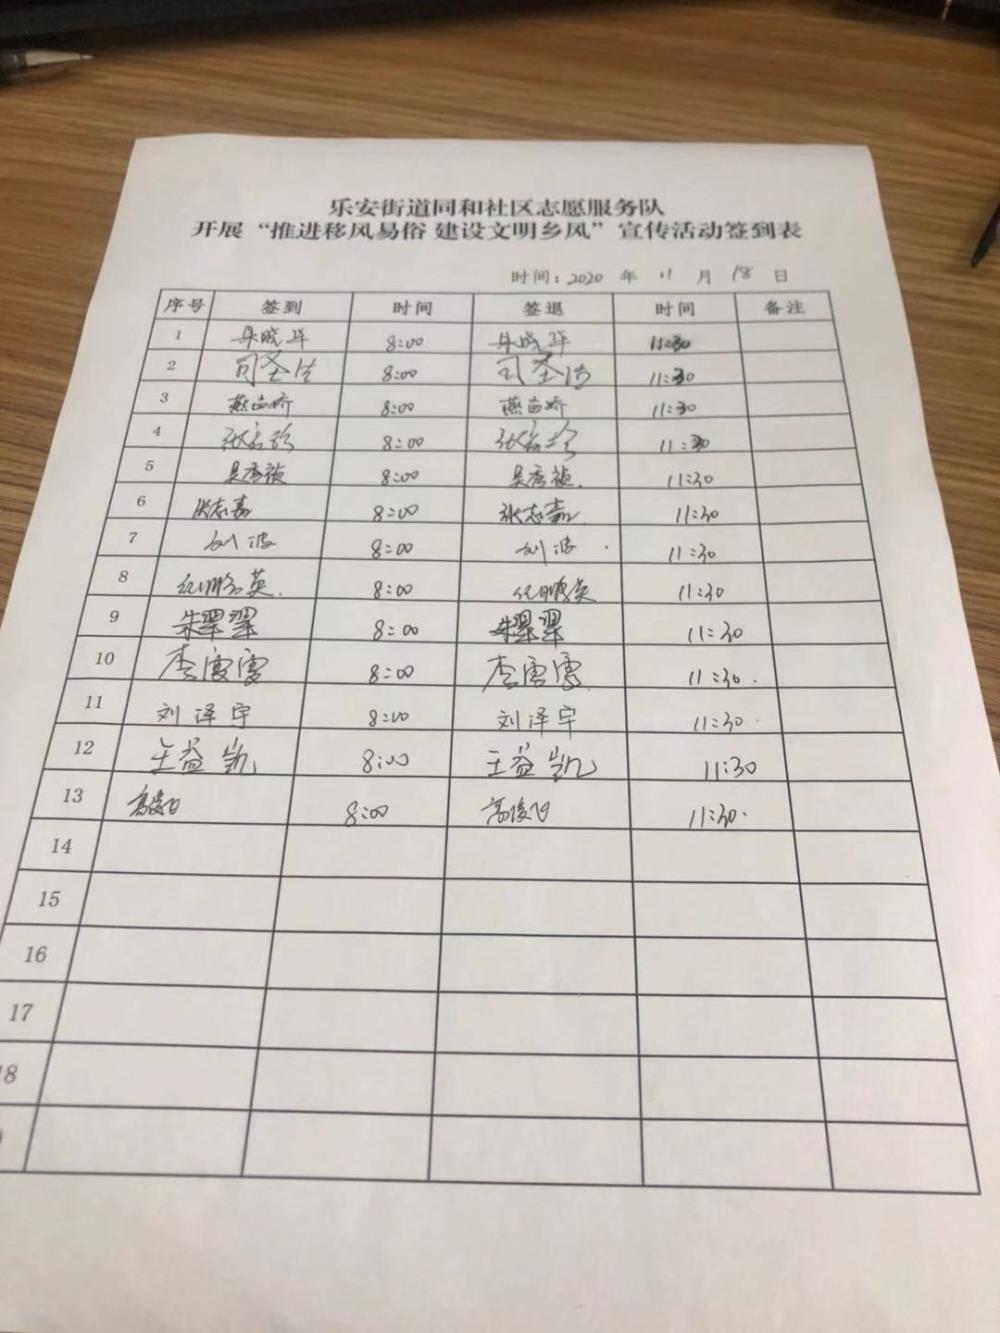 乐安街道同和社区志愿服务队
开展“推进移风易俗 建设文明乡风”宣传活动签到表
时间：2020 年 11 月 18 日
序号 签到 时间 签退 时间 备注
1 朱晓华 8:00 朱晓华 11:30
2 司圣洁 8:00 司圣洁 11:30
3 燕苗娇 8:00 燕苗娇 11:30
4 8:00 11:30
5 吴秀祯 8:00 吴秀祯 11:30
6 张志嘉 8:00 张志嘉 11:30
7 刘波 8:00 刘波 11:30
8 8:00 11:30
9 朱翠翠 8:00 朱翠翠 11:30
10 李雯雯 8:00 李雯雯 11:30
11 刘泽宇 8:00 刘泽宇 11:30
12 王益凯 8:00 王益凯 11:30
13 8:00 11:30
14
15
16
17
18